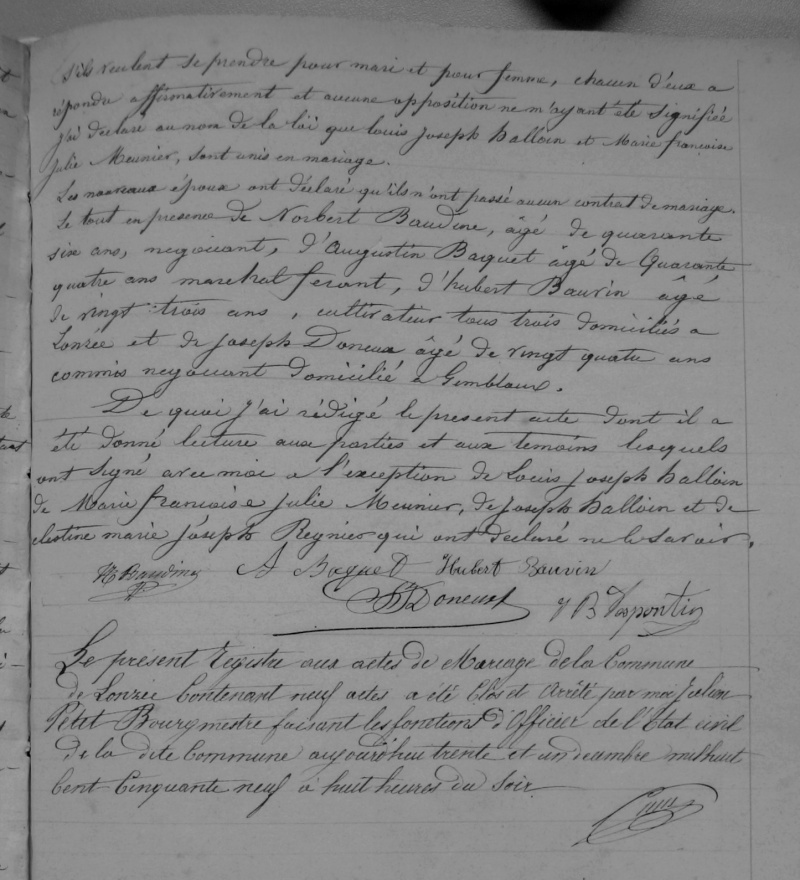 s'ils veulent se prendre pour mari et pour femme, chacun d'eux a
répondu affirmativement et aucune opposition ne m'ayant été signifiée
j'ai déclaré au nom de la loi que Louis Joseph halloin et Marie françoise
Julie Meunier, sont unis en mariage.
Les nouveaux époux ont déclaré qu'ils n'ont passé aucun contrat de mariage.
Le tout en présence de Norbert Baudine, âgé de quarante
six ans, negociant, d'Augustin Baquet âgé de Quarante
quatre ans marechal ferant, d'hubert Bauvin âgé
de vingt trois ans, cultivateur tous trois domiciliés a
Lonzée et de Joseph Doneux âgé de vingt quatre ans
commis negociant domicilié a Gembloux.
De quoi j'ai rédigé le present acte dont il a
été donné lecture aux parties et aux temoins lesquels
ont Signé avec moi a l'exception de Louis Joseph halloin
de Marie francoise Julie Meunier, de Joseph halloin et de
celestine marie Joseph Reynier qui ont declaré ne le Savoir.
N Baudine A Baquet Hubert Bauvin
Doneux J B Despontin
Le présent Registre aux actes de Mariage de la Commune
de Lonzée Contenant neuf actes a été Clos et Arrêté par moi Julien
Petit Bourgmestre faisant les fonctions d'Officier de l'Etat civil
de la dite Commune aujourd'hui trente et un decembre mil huit
Cent Cinquante neuf à huit heures du Soir